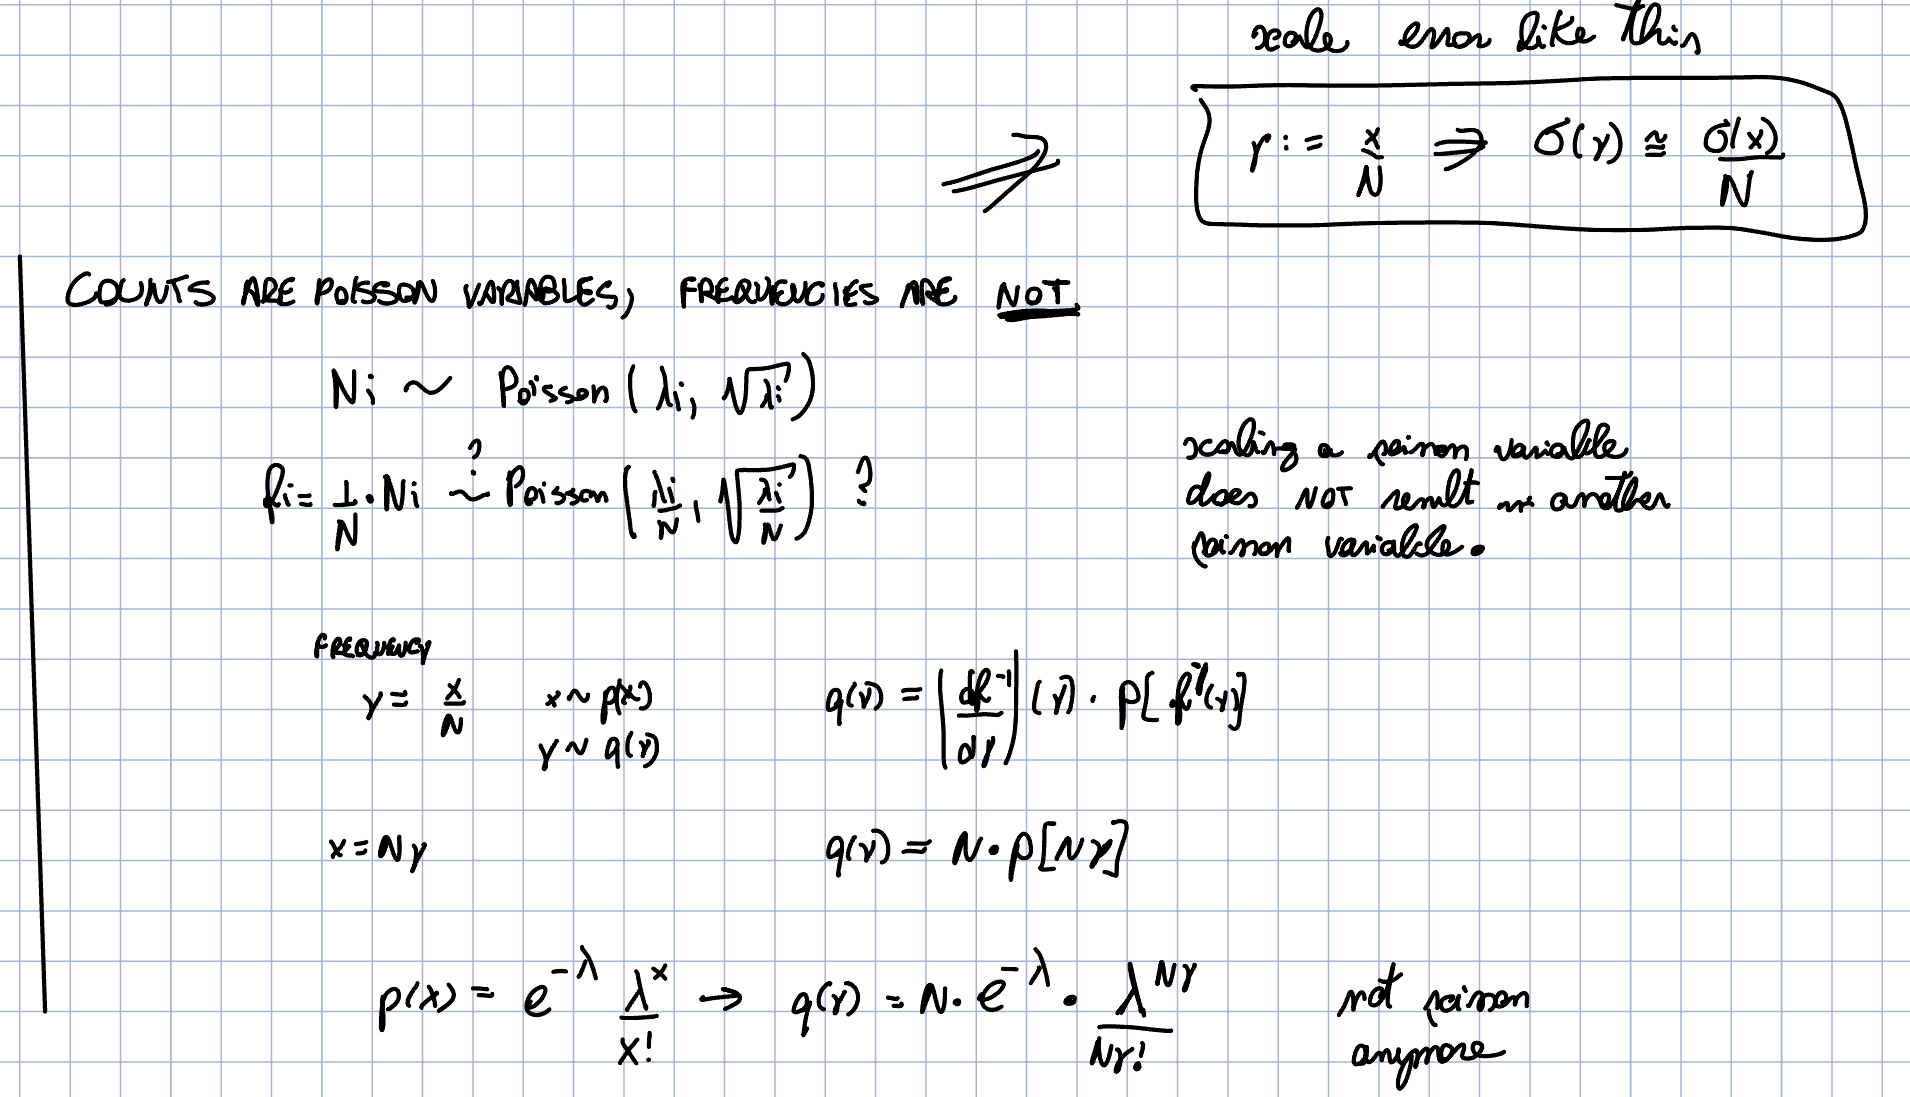 scale error like this
γ := x/N ⇒ σ(γ) ≅ σ(x)/N
COUNTS ARE POISSON VARIABLES, FREQUENCIES ARE NOT.
Ni ~ Poisson(λi, √λi)
fi = 1/N · Ni ~? Poisson(λi/N, √(λi/N)) ?
scaling a poisson variable
does NOT result in another
poisson variable.
FREQUENCY
γ = x/N x ~ p(x) q(γ) = |df⁻¹/dγ|(γ) · p[f⁻¹(γ)]
γ ~ q(γ)
x = Nγ q(γ) = N · p[Nγ]
p(x) = e^-λ λ^x/x! → q(γ) = N · e^-λ · λ^Nγ/Nγ! not poisson
anymore